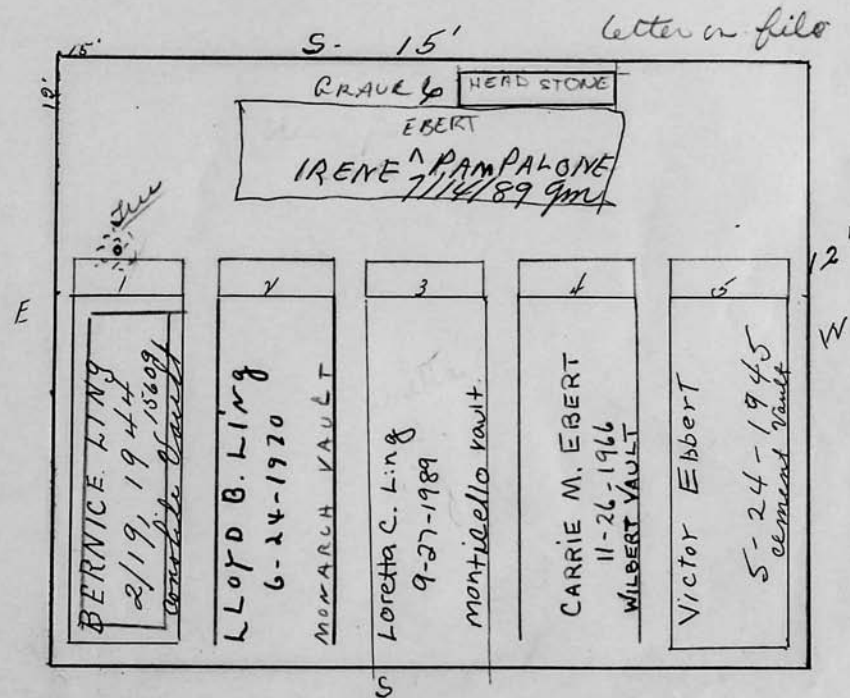 letter on file
S. 15'
15'
12'
GRAVE 6
HEAD STONE
EBERT
IRENE ^ PAMPALONE
7/14/89 gm
Tree
12'
E
W
1
2
3
4
5
BERNICE LING
2/19, 1944
15609
Vault
LLOYD B. LING
6-24-1970
MONARCH VAULT
Loretta C. Ling
9-27-1989
monticello vault.
CARRIE M. EBERT
11-26-1966
WILBERT VAULT
Victor Ebbert
5-24-1945
cement Vault
S